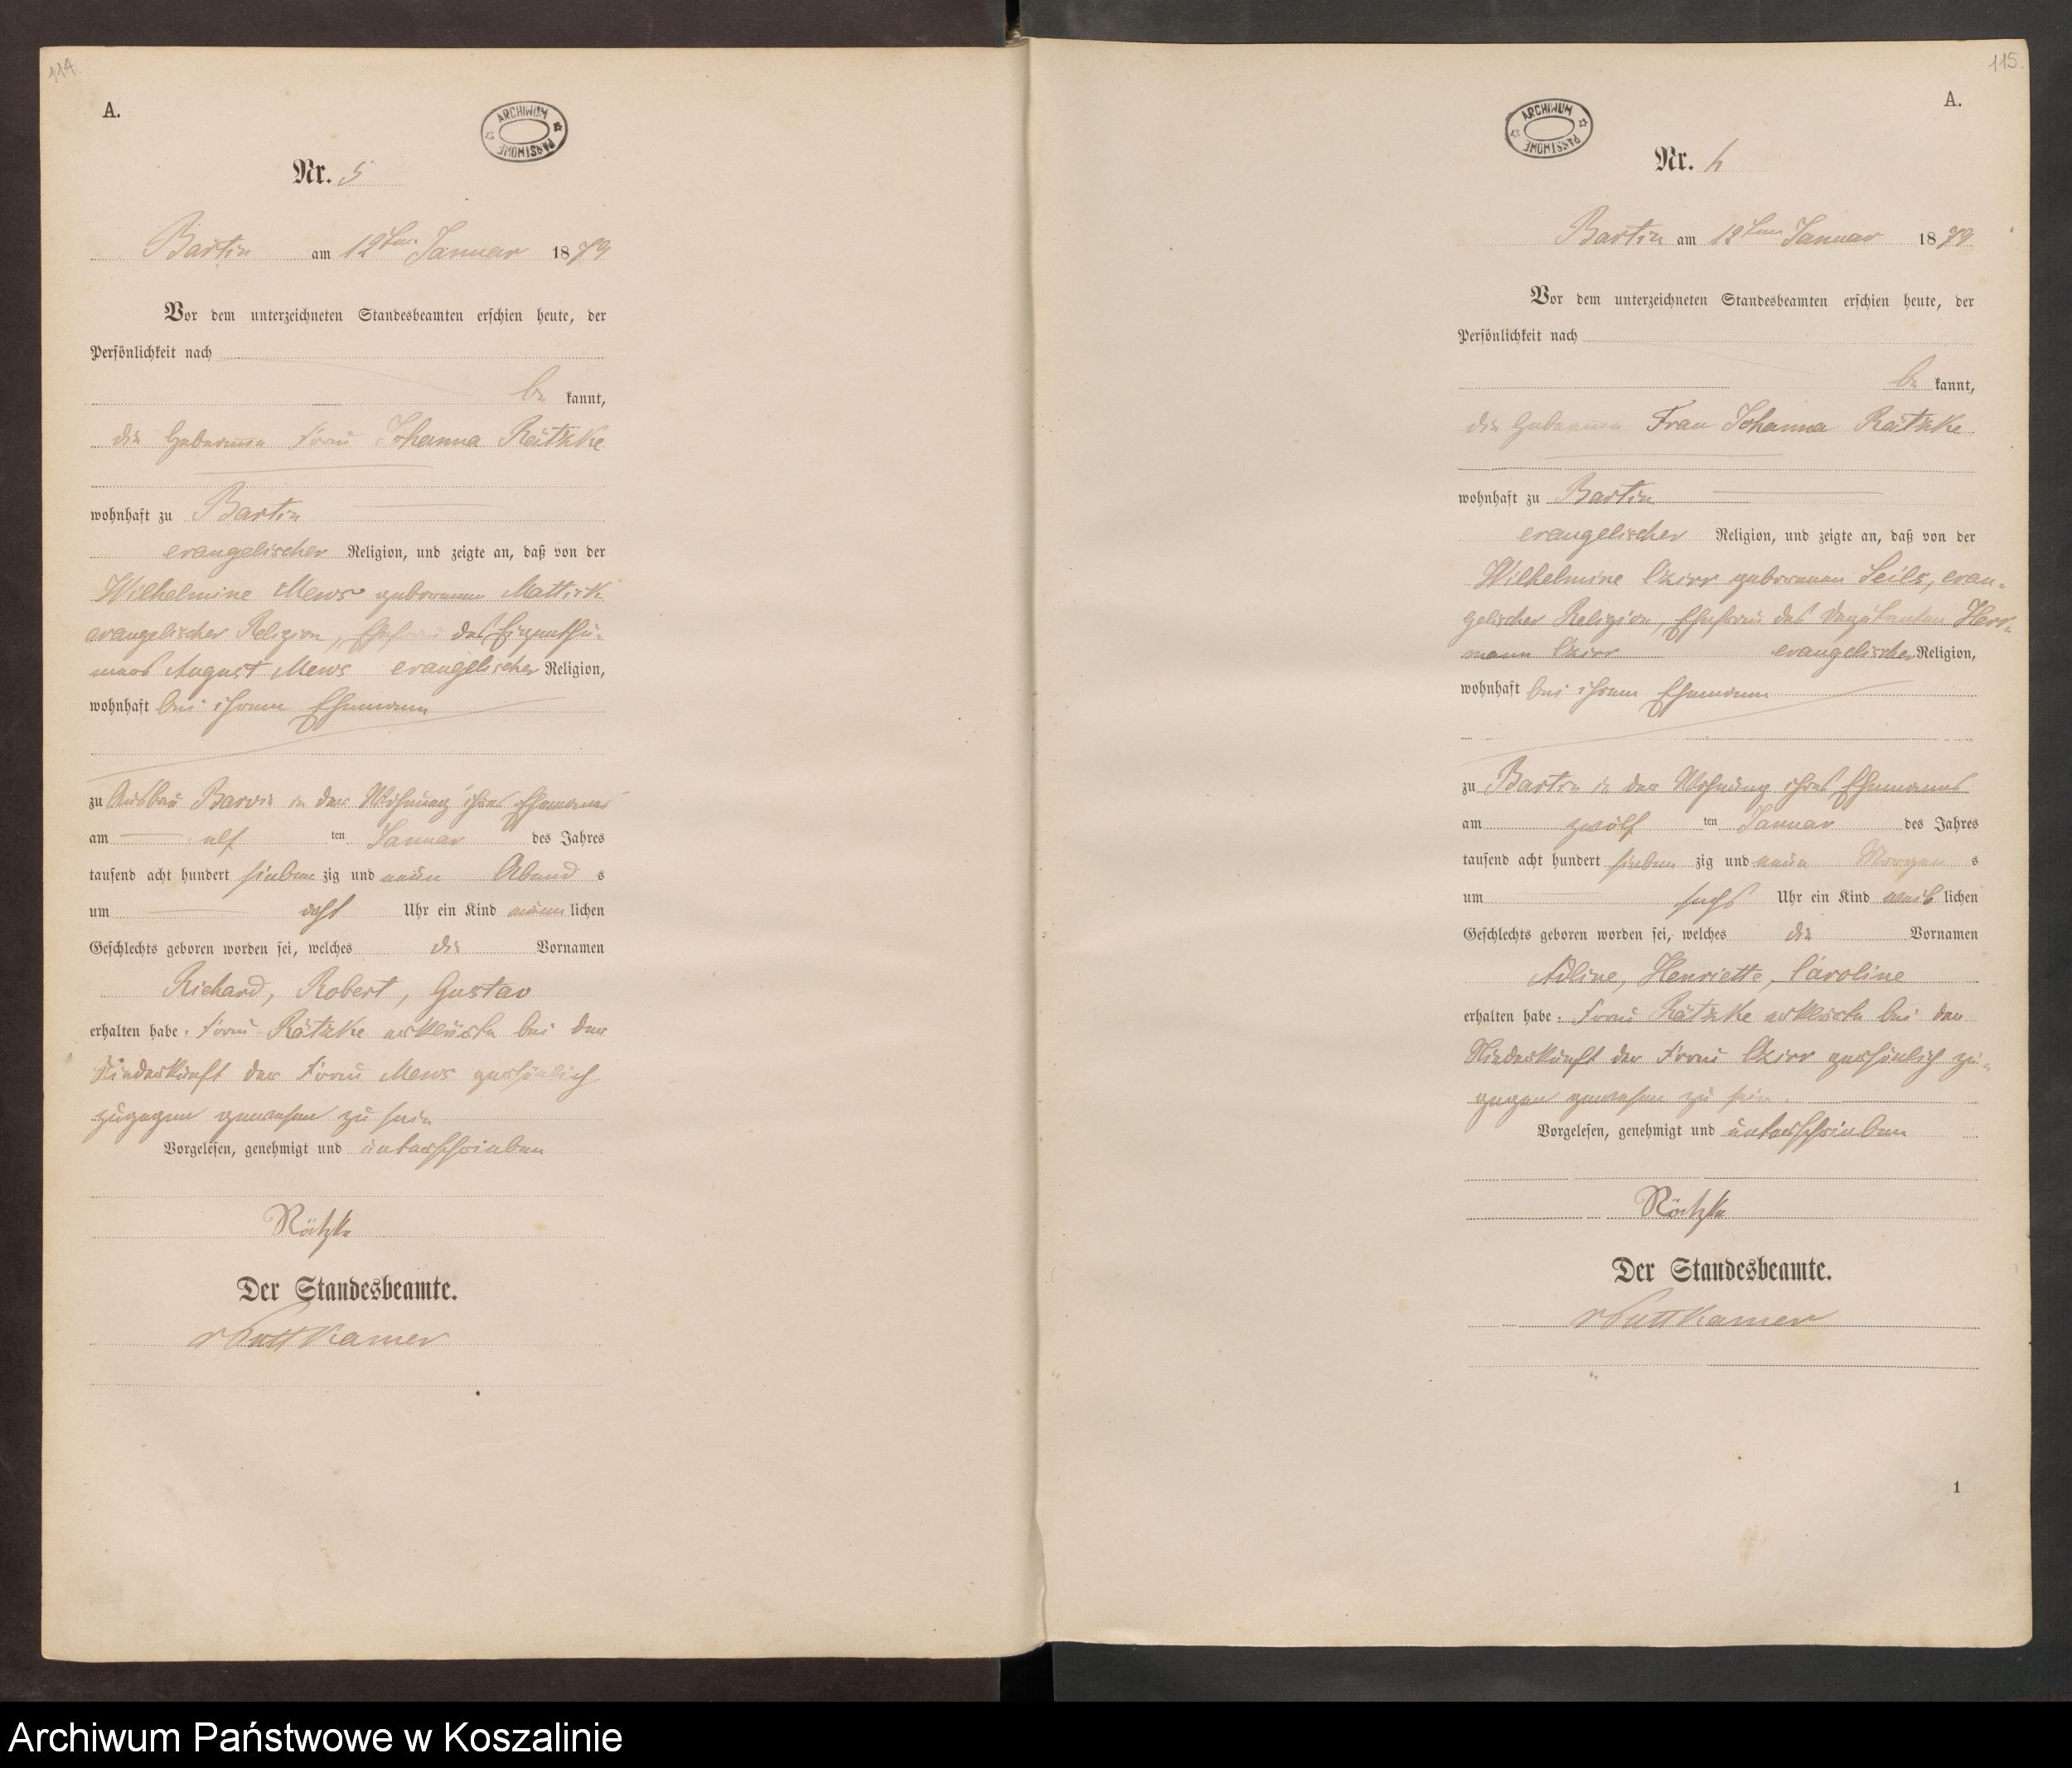 114.
A.
ARCHIWUM PAŃSTWOWE
Nr. 5
Bartin am 12ten Januar 1879
Vor dem unterzeichneten Standesbeamten erschien heute, der
Persönlichkeit nach
be kannt,
die Hebamme Frau Johanna Rätzke
wohnhaft zu Bartin
evangelischer Religion, und zeigte an, daß von der
Wilhelmine Mews geborenen Mattick
evangelischer Religion, Ehefrau des Eigenthü-
mers August Mews evangelischer Religion,
wohnhaft bei ihrem Ehemann
zu Ausbau Barvin in der Wohnung ihres Ehemannes
am elf ten Januar des Jahres
tausend acht hundert sieben zig und neun Abend s
um acht Uhr ein Kind männ lichen
Geschlechts geboren worden sei, welches die Vornamen
Richard, Robert, Gustav
erhalten habe. Frau Rätzke erklärte bei der
Niederkunft der Frau Mews persönlich
zugegen gewesen zu sein
Vorgelesen, genehmigt und unterschrieben
Rätzke
Der Standesbeamte.
v Puttkamer
115.
A.
ARCHIWUM PAŃSTWOWE
Nr. 6
Bartin am 12ten Januar 1879
Vor dem unterzeichneten Standesbeamten erschien heute, der
Persönlichkeit nach
be kannt,
die Hebamme Frau Johanna Rätzke
wohnhaft zu Bartin
evangelischer Religion, und zeigte an, daß von der
Wilhelmine geborenen Seils, evan-
gelischer Religion, Ehefrau des Herr-
mann evangelischer Religion,
wohnhaft bei ihrem Ehemann
zu Bartin in der Wohnung ihres Ehemannes
am zwölf ten Januar des Jahres
tausend acht hundert sieben zig und neun Morgen s
um sechs Uhr ein Kind weib lichen
Geschlechts geboren worden sei, welches die Vornamen
Adline, Henriette, Caroline
erhalten habe. Frau Rätzke erklärte bei der
Niederkunft der Frau persönlich zu-
gegen gewesen zu sein.
Vorgelesen, genehmigt und unterschrieben
Rätzke
Der Standesbeamte.
v Puttkamer
1
Archiwum Państwowe w Koszalinie